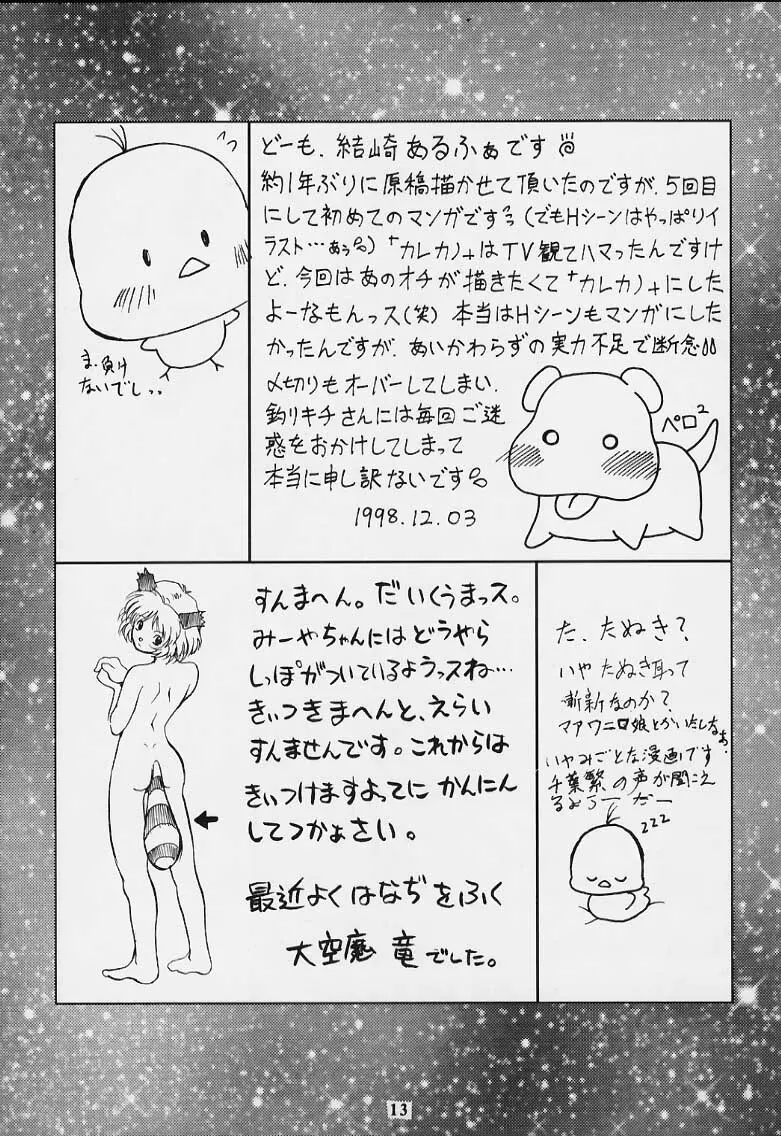 どーも、結崎あるふぁです
約1年ぶりに原稿描かせて頂いたのですが、5回目
にして初めてのマンガですっ(でもHシーンはやっぱりイ
ラスト…あぅ)「カレカノ」はTV観てハマったんですけ
ど、今回はあのオチが描きたくて「カレカノ」にした
よーなもんっス(笑) 本当はHシーンもマンガにした
かったんですが、あいかわらずの実力不足で断念
〆切りもオーバーしてしまい、
釣りキチさんには毎回ご迷
惑をおかけしてしまって
本当に申し訳ないです
1998.12.03
ペロ2
ま、負け
ないでし、、
すんまへん。だいくうまっス。
みーやちゃんにはどうやら
しっぽがついているようっスね…
きぃつきまへんと、えらい
すんませんです。これからは
きぃつけますよってに かんにん
してつかぁさい。
最近よくはなぢをふく
大空魔 竜でした。
た、たぬき?
いや たぬき耳って
斬新なのか?
マアワニ口娘とかいたしなぁ、
いやみごとな漫画です
千葉繁の声が聞こえ
るよう ー だー
zzz
13